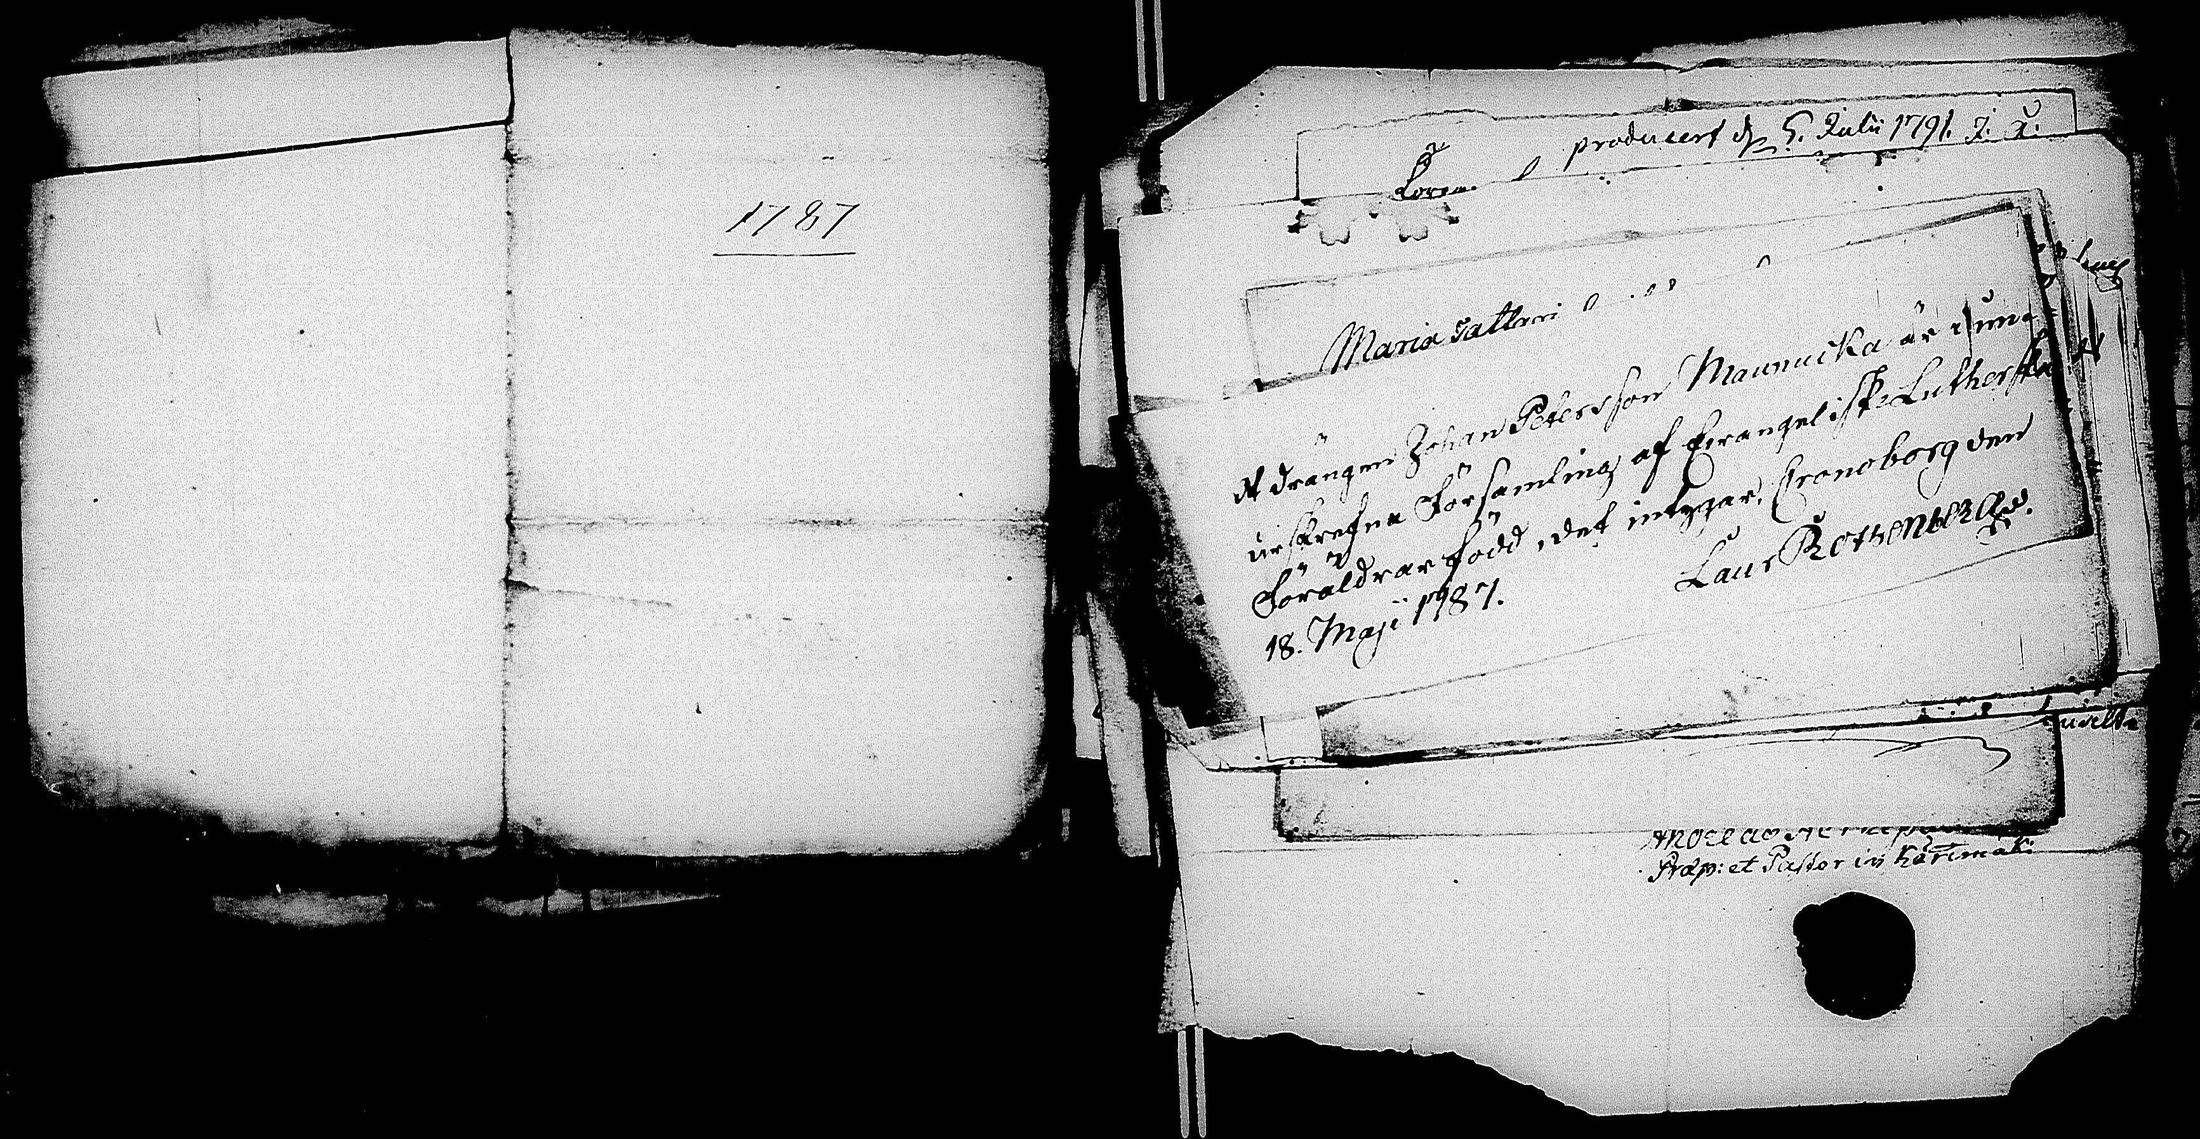 1787
producert d. 5. Julii 1791. J. J.
Maria Tattari
At drängen Johan Petersson Maunucka är i juma
urskrefna Församling af Evangelisk-Lutherska
Föräldrar född, det intygar, Cronoborg den
18. Maji 1787.
Laur Rothenberg
Præp: et Pastor in Kärimäki